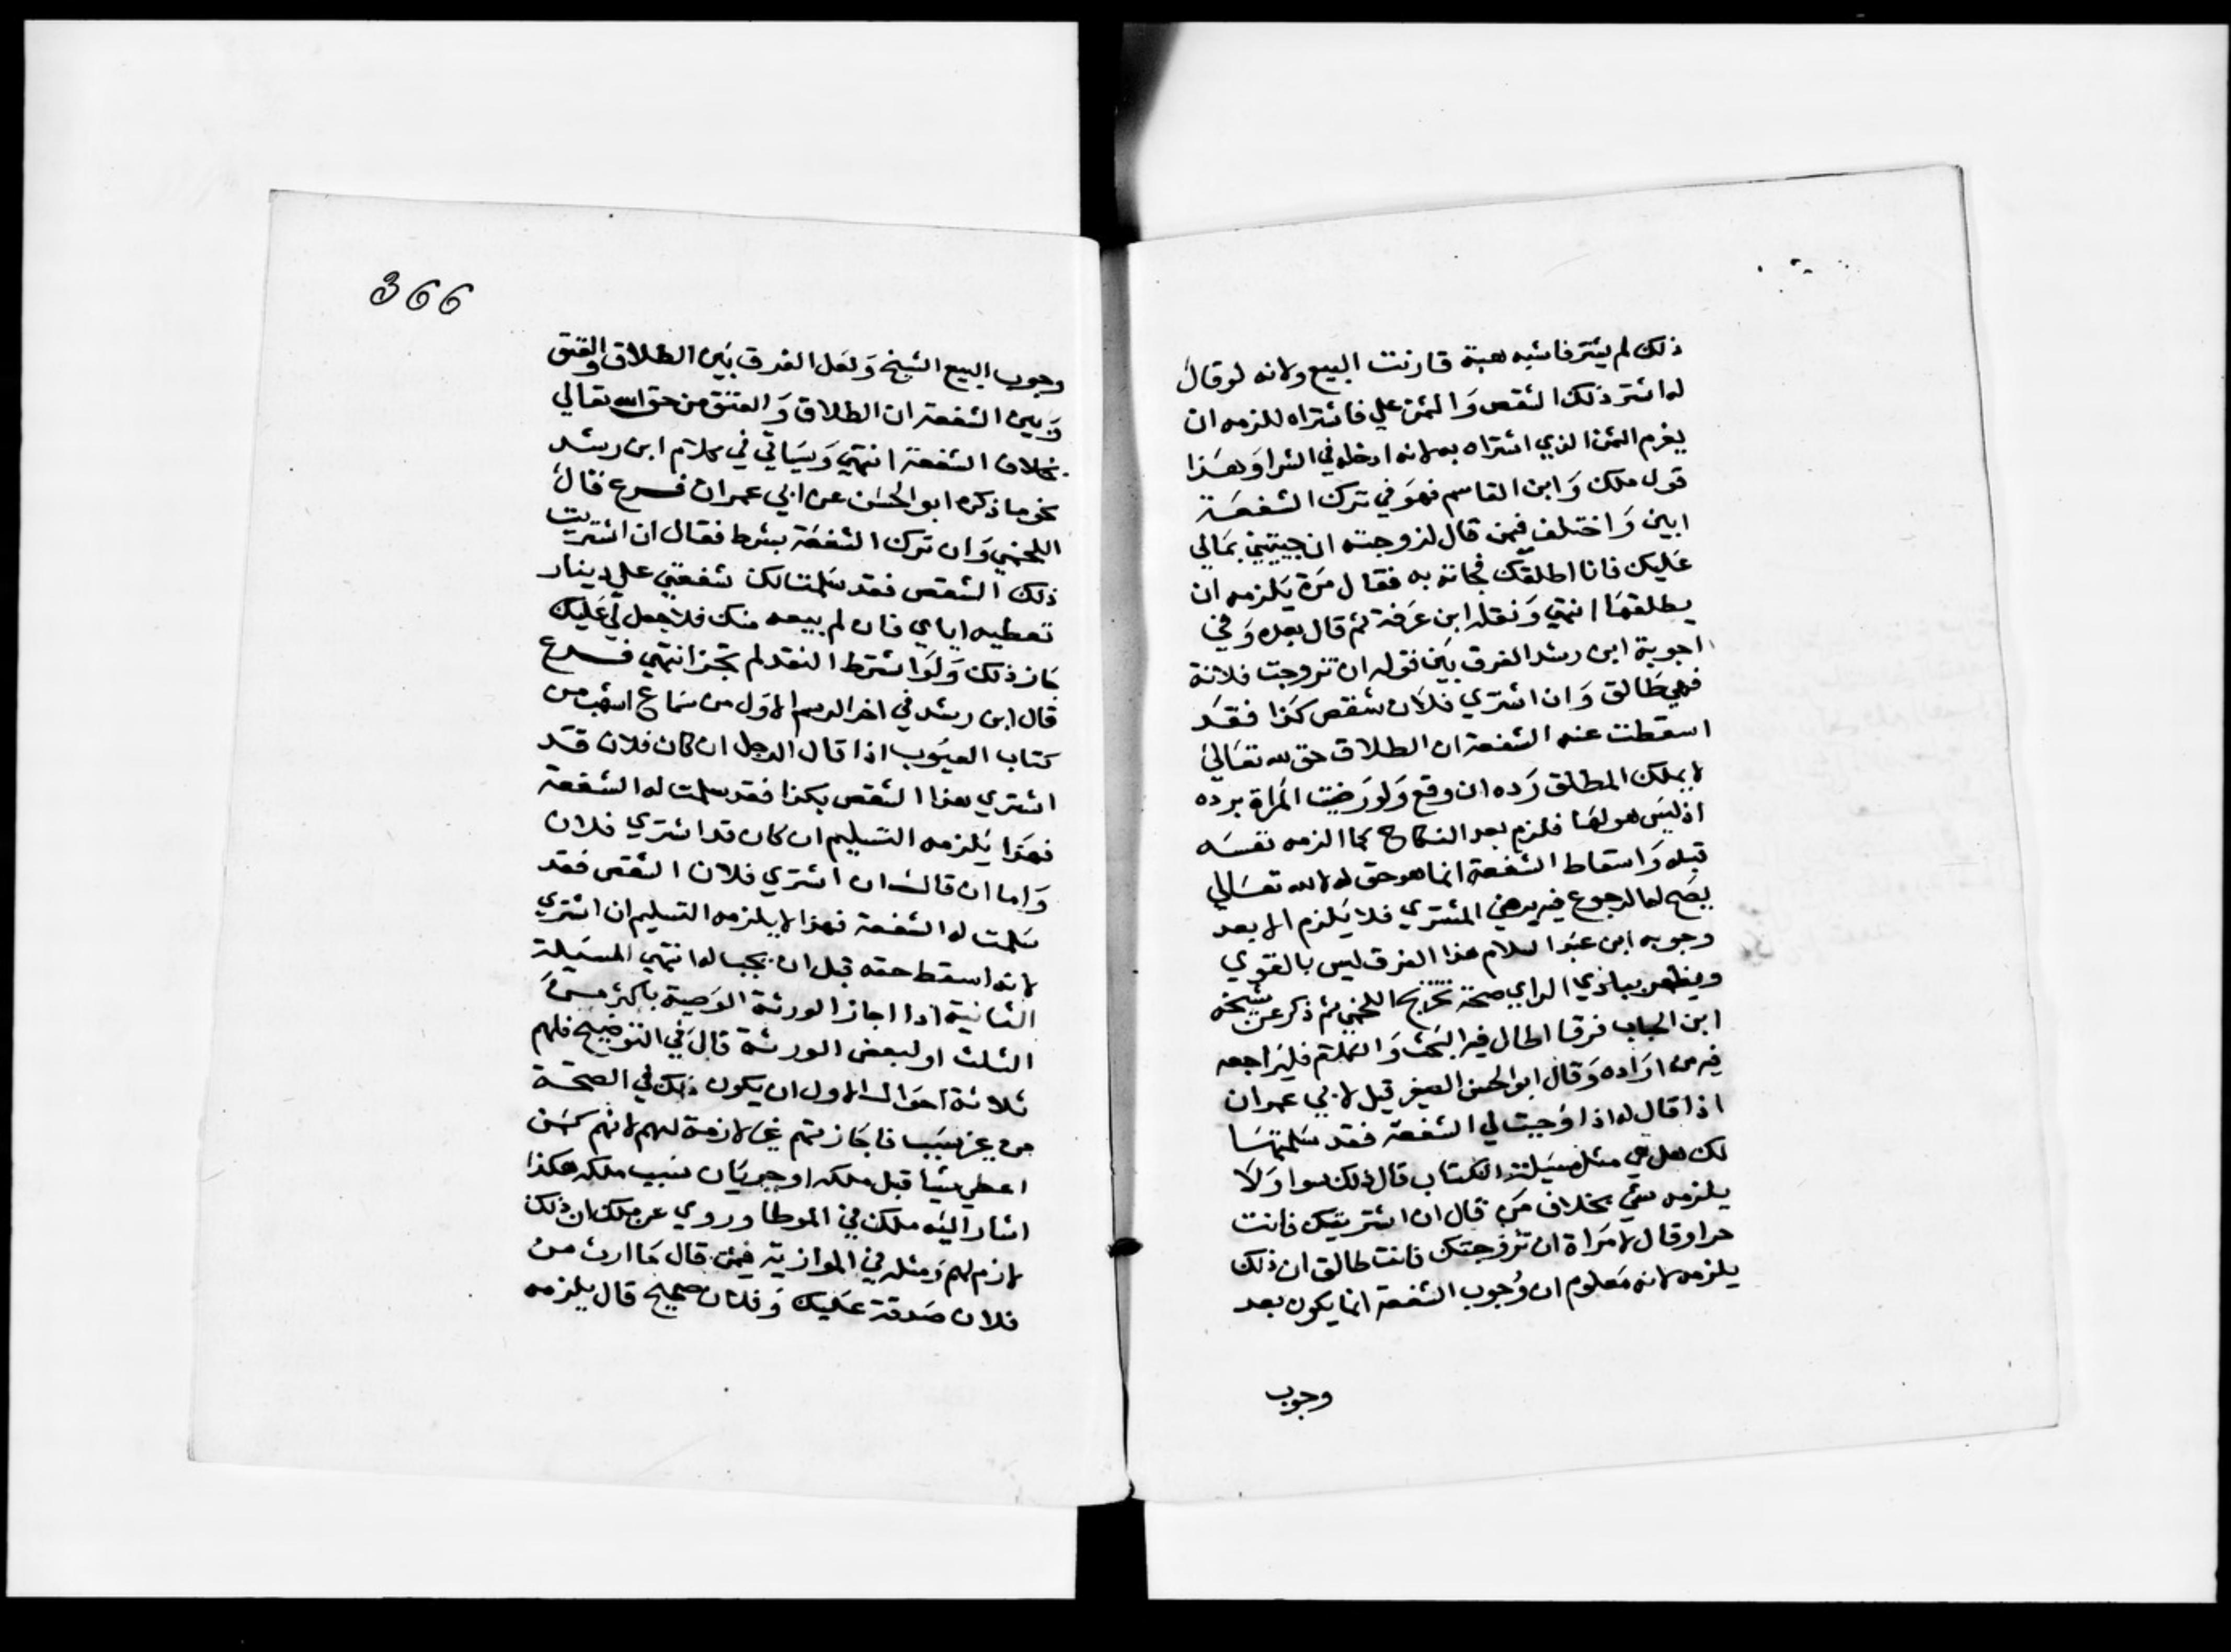 ذلك لم يشتر فاشبه هبة قارنت البيع ولانه لو قال
له اشتر ذلك الشقص وَالثمن علي فاشتراه للزمه ان
يغرم الثمن الذي اشتراه به لانه ادخله في الشرا وَهَذا
قول ملك وَابن القاسم فهوَ في ترك الشفعَة
ابين وَاختلف فيمن قال لزوجته ان جيتيني بمَالي
عَليك فانا اطلقك فجاته به فقال مَرة يَلزمه ان
يطلقهَا انتهي وَنقله ابن عَرفة ثم قال بعده وَفي
اجوبة ابن رشد الفرق بَين قوله ان تزوجت فلانة
فهي طَالق وَان اشتري فلان شقص كذا فقَد
اسقطت عنه الشفعة ان الطلاق حق لله تعَالي
لا يملك المطلق رَده ان وقع وَلو رَضيت المراة برده
اذ ليسَ هو لهَا فلزم بعد النكاح كما الزمه نفسَه
قبله وَاسقاط الشفعة انما هو حق له لا لله تعَالي
يصَح له الرجوع فيه برضي المشتري فلا يَلزم الا بعد
وجوبه ابن عبد السلام هذا الفرق ليس بالقوي
ويظهر ببادي الراي صحة تخريج اللخمي ثم ذكر عن شيخه
ابن الحباب فرقا اطال فيه البَحث وَالكلام فليرَاجعه
فيه من ارَاده وَقال ابو الحسن الصغير قيل لابي عمران
اذا قال له اذا وُجبت لي الشفعة فقد سَلمتهَا
لك هل هي مثل مسَيلة الكتاب قال ذلك سوا وَلا
يلزمه شي بخلاف مَن قال ان اشتريتك فانت
حر او قال لامَراة ان تزوجتك فانت طالق ان ذلك
يلزمه لانه مَعلوم ان وُجوب الشفعة انما يكون بعد
وجوب
366
وجوب البيع الشيخ وَلعَل الفرق بَين الطلاق والعتق
وَبين الشفعة ان الطلاق وَالعتق من حق الله تعالي
بخلاف الشفعة انتهي وَسيَاتي في كلام ابن رشد
نحو ما ذكره ابو الحسَن عن ابي عمران فرع قال
اللخمي وَان ترك الشفعَة بشرط فقال ان اشتريت
ذلك الشقص فقد سَلمت لك شفعتي علي دينار
تعطيه اياي فان لم يبيعه منك فلا جعل لي عَليك
جَاز ذلك وَلوَ اشترط النقد لم تجز انتهي فرع
قال ابن رشد في اخر الرسم الاوَل من سَماع اشهب من
كتاب العيوب اذا قال الرجل ان كان فلان قد
اشتري هذا الشقص بكذا فقد سلمت له الشفعة
فهَذا يَلزمه التسليم ان كان قد اشتري فلان
وَاما ان قال ان اشتري فلان الشقص فقد
سَلمت له الشفعة فهذا لا يلزمه التسليم ان اشتري
لانه اسقط حقه قبل ان يجب له انتهي المسَيلة
الثانية اذا اجاز الورثة الوَصية باكثر من
الثلث او لبعض الورثة قال في التوضيح فلهم
ثلاثة احوَال الاول ان يكون ذلك في الصحة
من غير سَبب فاجَازتهم غير لازمة لهم لانهم كمن
اعطي شيا قبل ملكه او جريَان سَبب ملكه هكذا
اشار اليه ملك في الموطا وروي عن ملك ان ذلك
لازم لهم وَمثله في الموازية فيمن قال مَا ارث من
فلان صَدقة عَليك وَفلان صحيح قال يلزمه